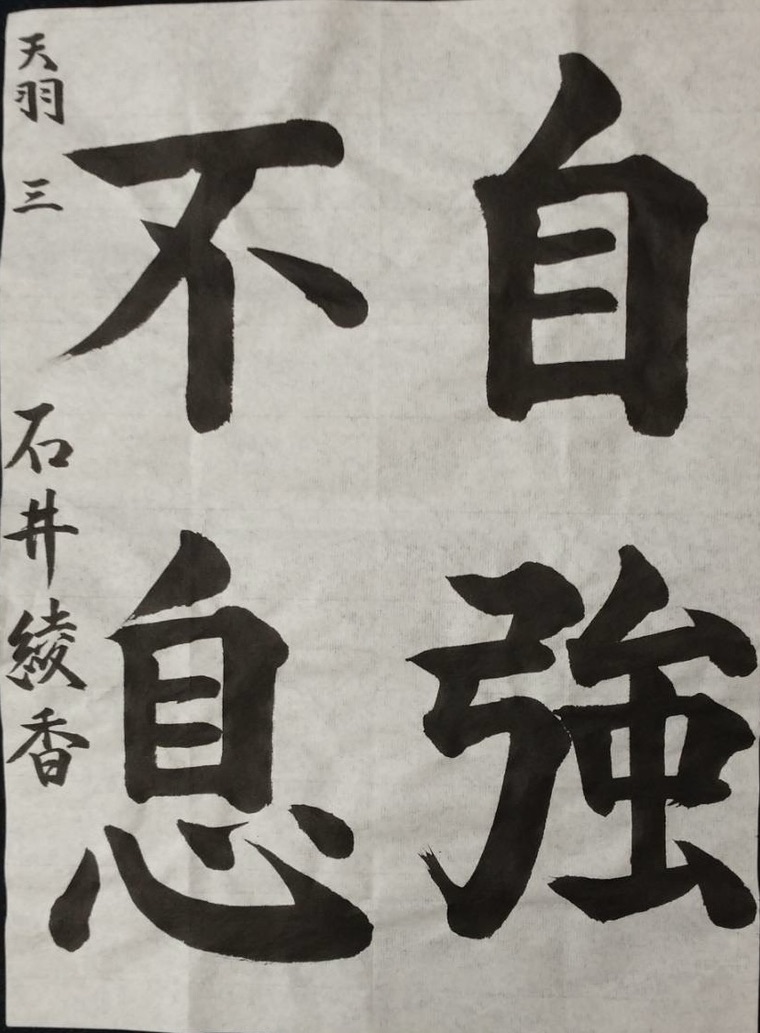 自強
不息
天羽 三 石井綾香